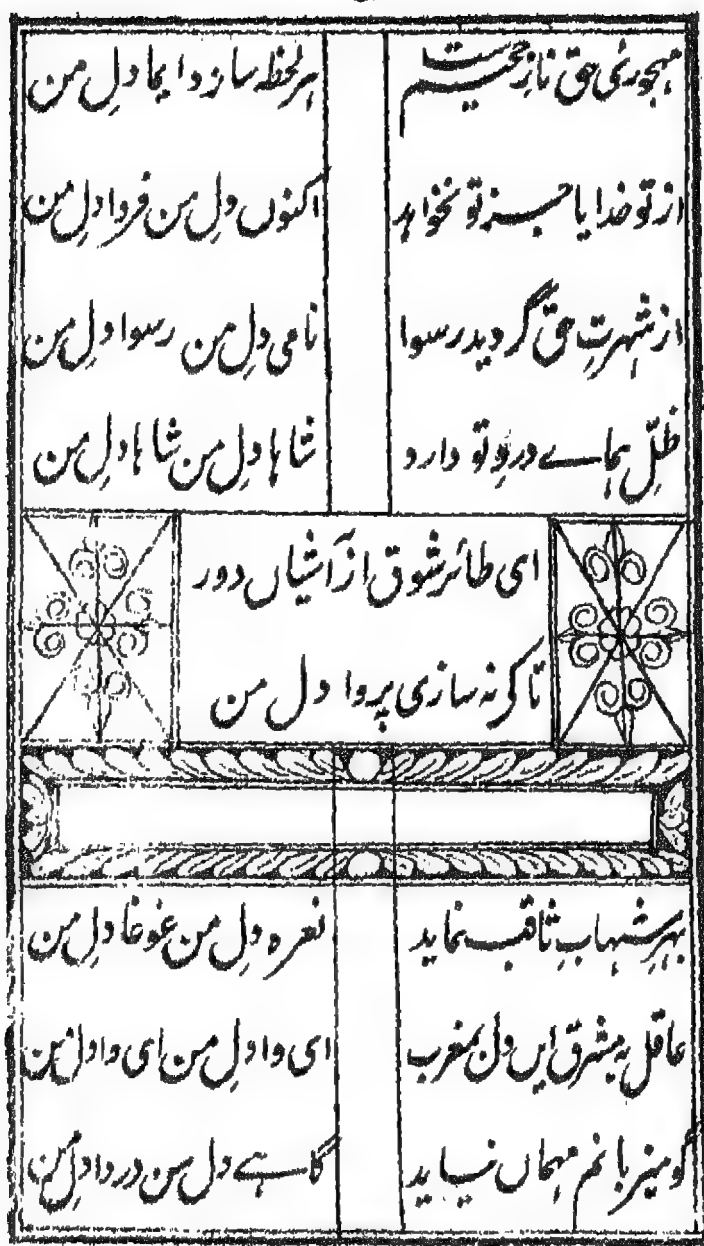 مہجورئ حق نازِ ست
ہر لحظہ سازد ایما دلِ من
از تو خدایا جز تو نخواہد
اکنوں دلِ من فردا دلِ من
از شہرتِ حق گردید رسوا
نامی دلِ من رسوا دلِ من
ظلِّ ہماے تو دارد
شاہا دلِ من شاہا دلِ من
ای طائرِ شوق از آشیاں دور
نہ سازی پروا دل من
بہرِ شہابِ ثاقب نماید
نعرہ دلِ من غوغا دلِ من
عاقل بہ مشرق ایں دل بمغرب
ای وا دلِ من ای وا دلِ من
گو میزبانم مہماں نیاید
گاہے دل من دردا دلِ من